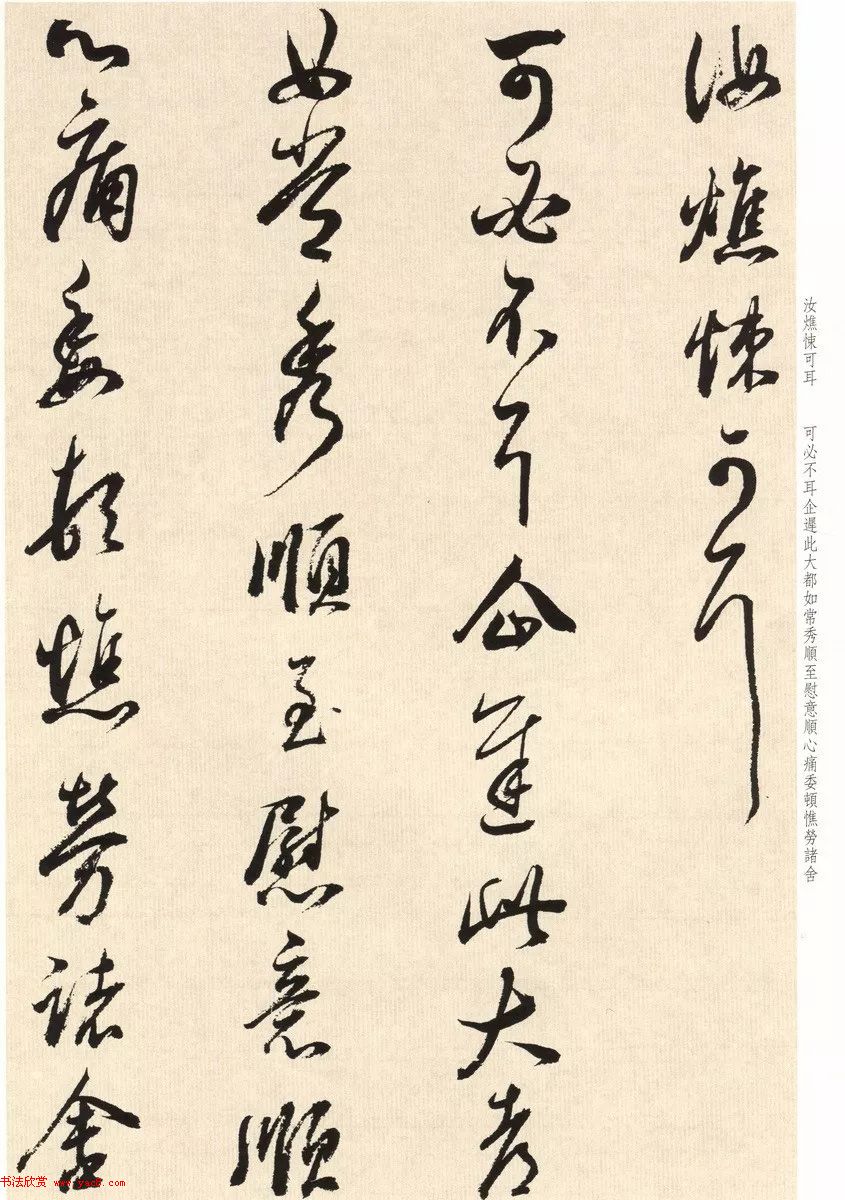 汝燋悚可耳
可必不耳企遲此大都
如常秀順至慰意順
心痛委頓憔勞諸舍
汝燋悚可耳 可必不耳企遲此大都如常秀順至慰意順心痛委頓憔勞諸舍
书法欣赏 www.yac8.com